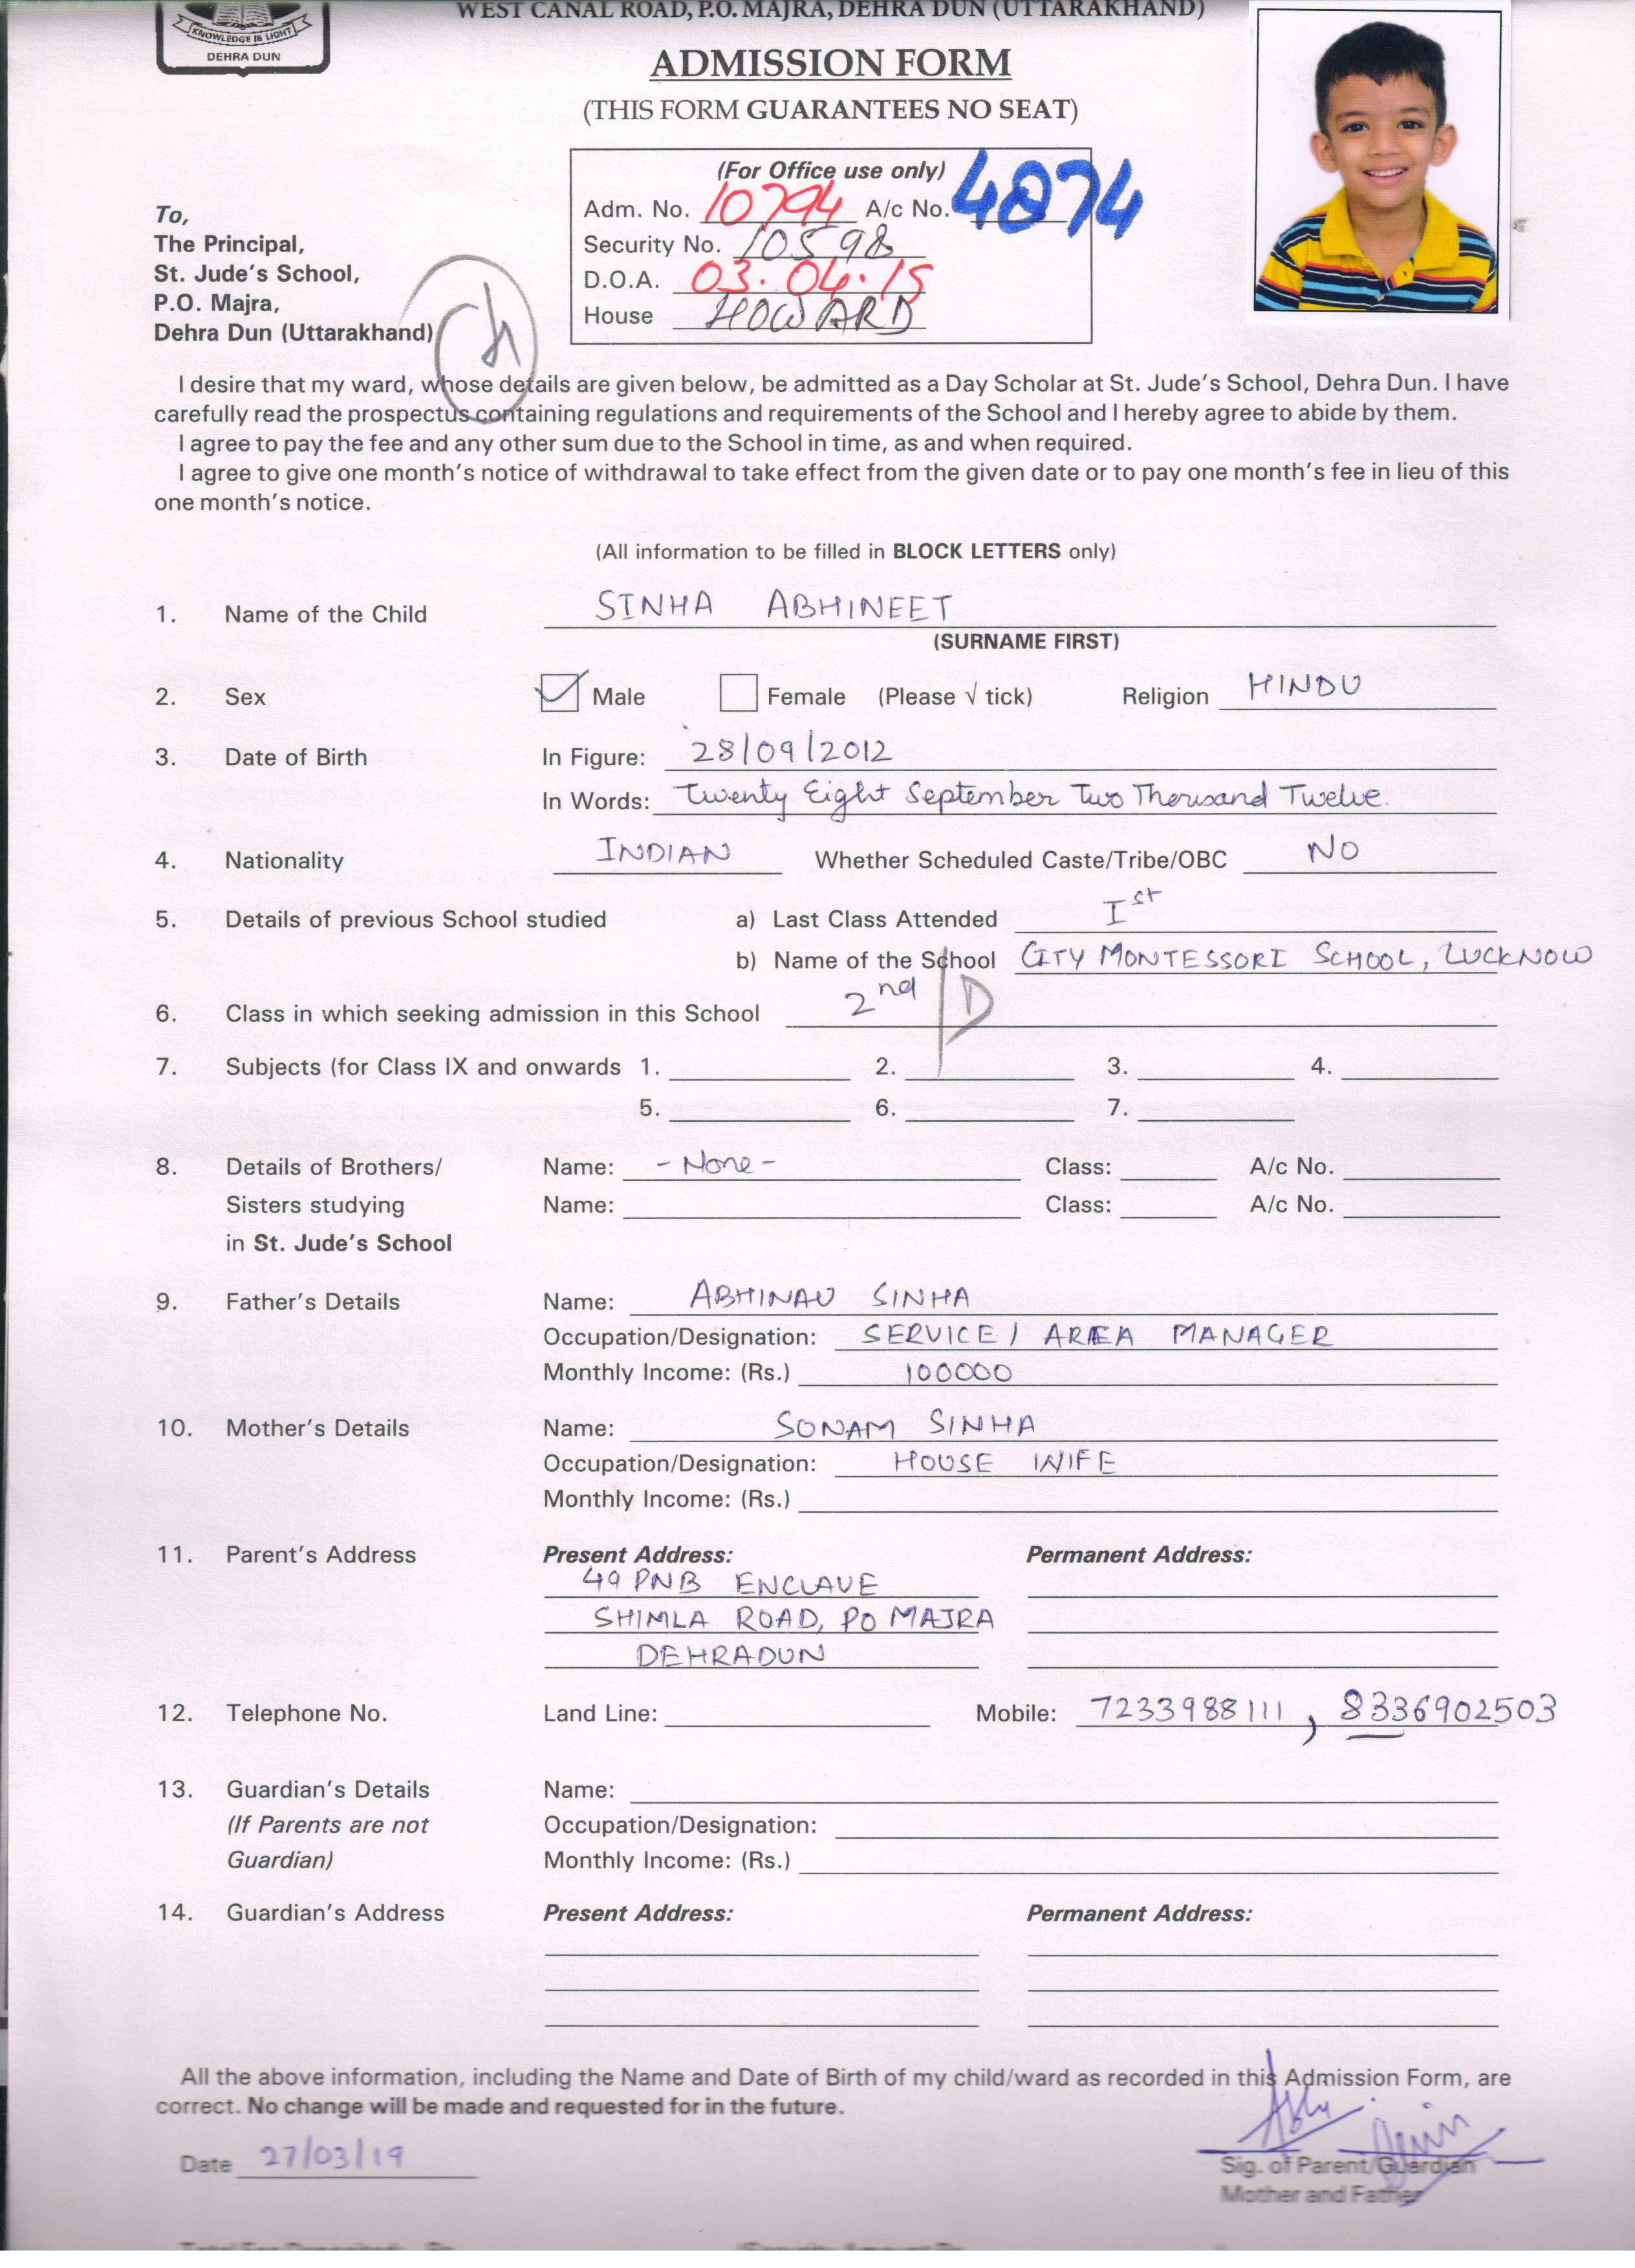 WEST CANAL ROAD, P.O. MAJRA, DEHRA DUN (UTTARAKHAND)
KNOWLEDGE IS LIGHT
DEHRA DUN
ADMISSION FORM
(THIS FORM GUARANTEES NO SEAT)
(For Office use only)
Adm. No. 10794 A/c No. 4874
Security No. 10598
D.O.A. 03.04.19
House HOWARD
To,
The Principal,
St. Jude's School,
P.O. Majra,
Dehra Dun (Uttarakhand)
I desire that my ward, whose details are given below, be admitted as a Day Scholar at St. Jude's School, Dehra Dun. I have
carefully read the prospectus containing regulations and requirements of the School and I hereby agree to abide by them.
I agree to pay the fee and any other sum due to the School in time, as and when required.
I agree to give one month's notice of withdrawal to take effect from the given date or to pay one month's fee in lieu of this
one month's notice.
(All information to be filled in BLOCK LETTERS only)
1. Name of the Child SINHA ABHINEET
(SURNAME FIRST)
2. Sex Male Female (Please √ tick) Religion HINDU
3. Date of Birth In Figure: 28/09/2012
In Words: Twenty Eight September Two Thousand Twelve.
4. Nationality INDIAN Whether Scheduled Caste/Tribe/OBC NO
5. Details of previous School studied a) Last Class Attended Ist
b) Name of the School CITY MONTESSORI SCHOOL, LUCKNOW
6. Class in which seeking admission in this School 2nd D
7. Subjects (for Class IX and onwards 1. 2. 3. 4.
5. 6. 7.
8. Details of Brothers/ Name: - None - Class: A/c No.
Sisters studying Name: Class: A/c No.
in St. Jude's School
9. Father's Details Name: ABHINAV SINHA
Occupation/Designation: SERVICE / AREA MANAGER
Monthly Income: (Rs.) 100000
10. Mother's Details Name: SONAM SINHA
Occupation/Designation: HOUSE WIFE
Monthly Income: (Rs.)
11. Parent's Address Present Address: Permanent Address:
49 PNB ENCLAVE
SHIMLA ROAD, PO MAJRA
DEHRADUN
12. Telephone No. Land Line: Mobile: 7233988111, 8336902503
13. Guardian's Details Name:
(If Parents are not Occupation/Designation:
Guardian) Monthly Income: (Rs.)
14. Guardian's Address Present Address: Permanent Address:
All the above information, including the Name and Date of Birth of my child/ward as recorded in this Admission Form, are
correct. No change will be made and requested for in the future.
Date 27/03/19
Sig. of Parent/Guardian
Mother and Father